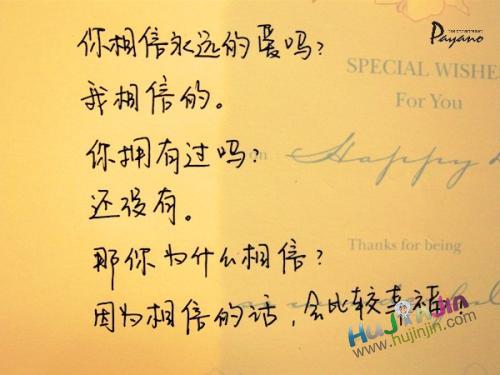 Payano
你相信永远的爱吗?
SPECIAL WISHES
我相信的。
For You
你拥有过吗?
Happy
还没有。
Thanks for being
那你为什么相信?
因为相信的话,会比较幸福。
HuJinJin
www.hujinjin.com